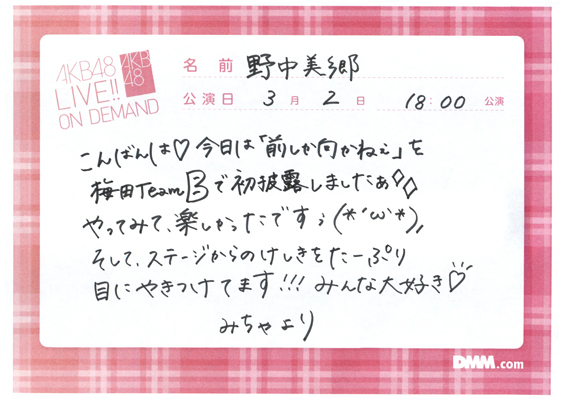 AKB48
LIVE!!
ON DEMAND
AKB
48
名前 野中美郷
公演日 3月2日 18:00 公演
こんばんは♡今日は「前しか向かねえ」を
梅田TeamBで初披露しましたぁ◇◇
やってみて、楽しかったです;(*´ω`*),,
そして、ステージからのけしきをたーぷり
目にやきつけてます!!! みんな大好き♡
みちゃより
DMM.com